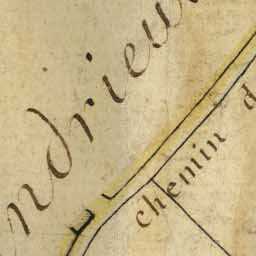 ndrieu
chemin d